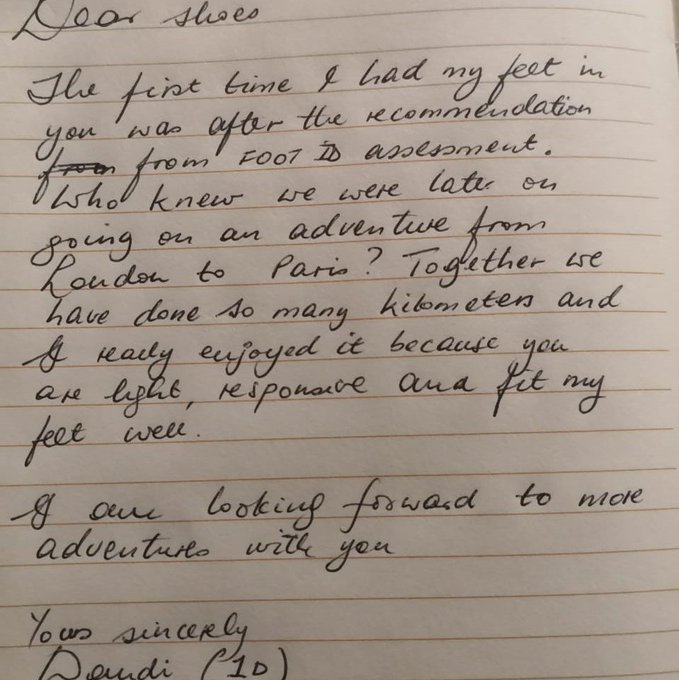 Dear shoes
The first time I had my feet in
you was after the recommendation
from from FOOT ID assessment.
Who knew we were later on
going on an adventure from
London to Paris? Together we
have done so many kilometers and
I really enjoyed it because you
are light, responsive and fit my
feet well.
I am looking forward to more
adventures with you
Yours sincerely
Daudi (ID)